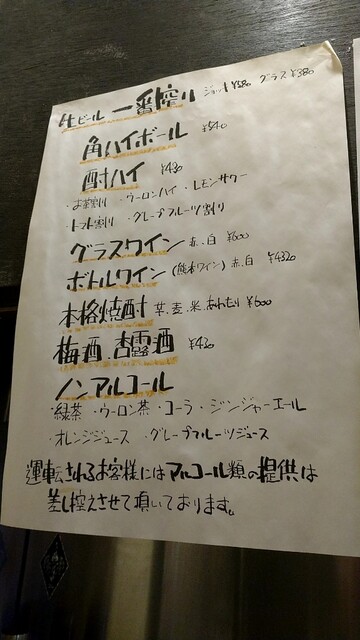 生ビール 一番搾り ジョッキ ¥580 グラス ¥380
角ハイボール ¥540
酎ハイ ¥430
・お茶割り ・ウーロンハイ ・レモンサワー
・トマト割り ・グレープフルーツ割り
グラスワイン 赤、白 ¥600
ボトルワイン (熊本ワイン) 赤、白 ¥4320
本格焼酎 芋、麦、米、あわもり ¥600
梅酒、杏露酒 ¥430
ノンアルコール
・緑茶 ・ウーロン茶 ・コーラ ・ジンジャーエール
・オレンジジュース ・グレープフルーツジュース
運転されるお客様にはアルコール類の提供は
差し控えさせて頂いております。